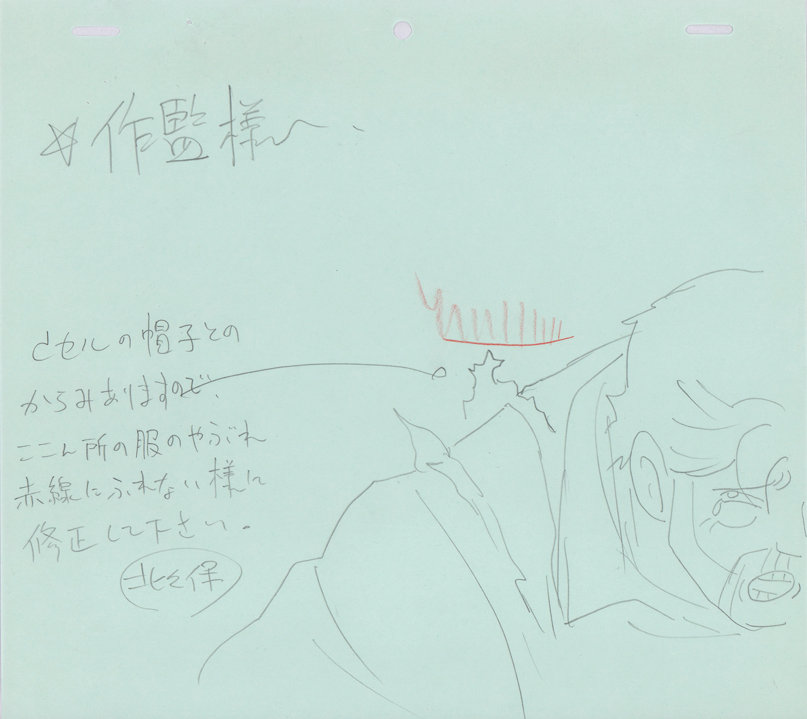 ☆作監様へ
dセルの帽子との
からみありますので、
ここん所の服のやぶれ
赤線にふれない様に
修正して下さい。
北久保